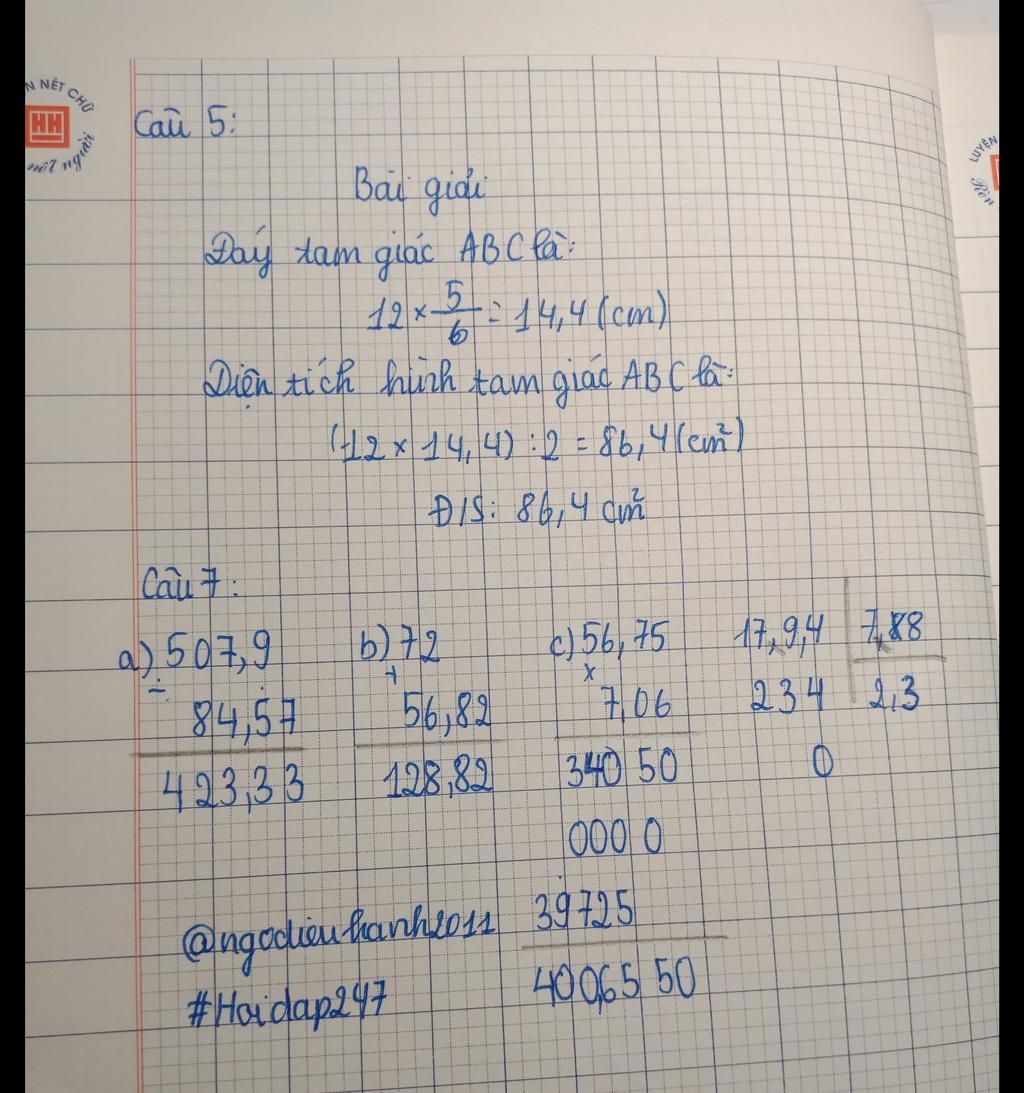 N NẾT CHỮ
HH
nết người
LUYỆN
Rèn
Câu 5:
Bài giải
Đáy tam giác ABC là:
12 × 5/6 = 14,4 (cm)
Diện tích hình tam giác ABC là:
(12 × 14,4) : 2 = 86,4 (cm²)
Đ/S: 86,4 cm²
Câu 7:
a) 507,9 b) 72 c) 56,75 17,9,4 7,88
- + ×
84,57 56,82 7,06 234 2,3
423,33 128,82 34050 0
0000
39725
400,6550
@ngodieuthanh2011
#Hoidap247